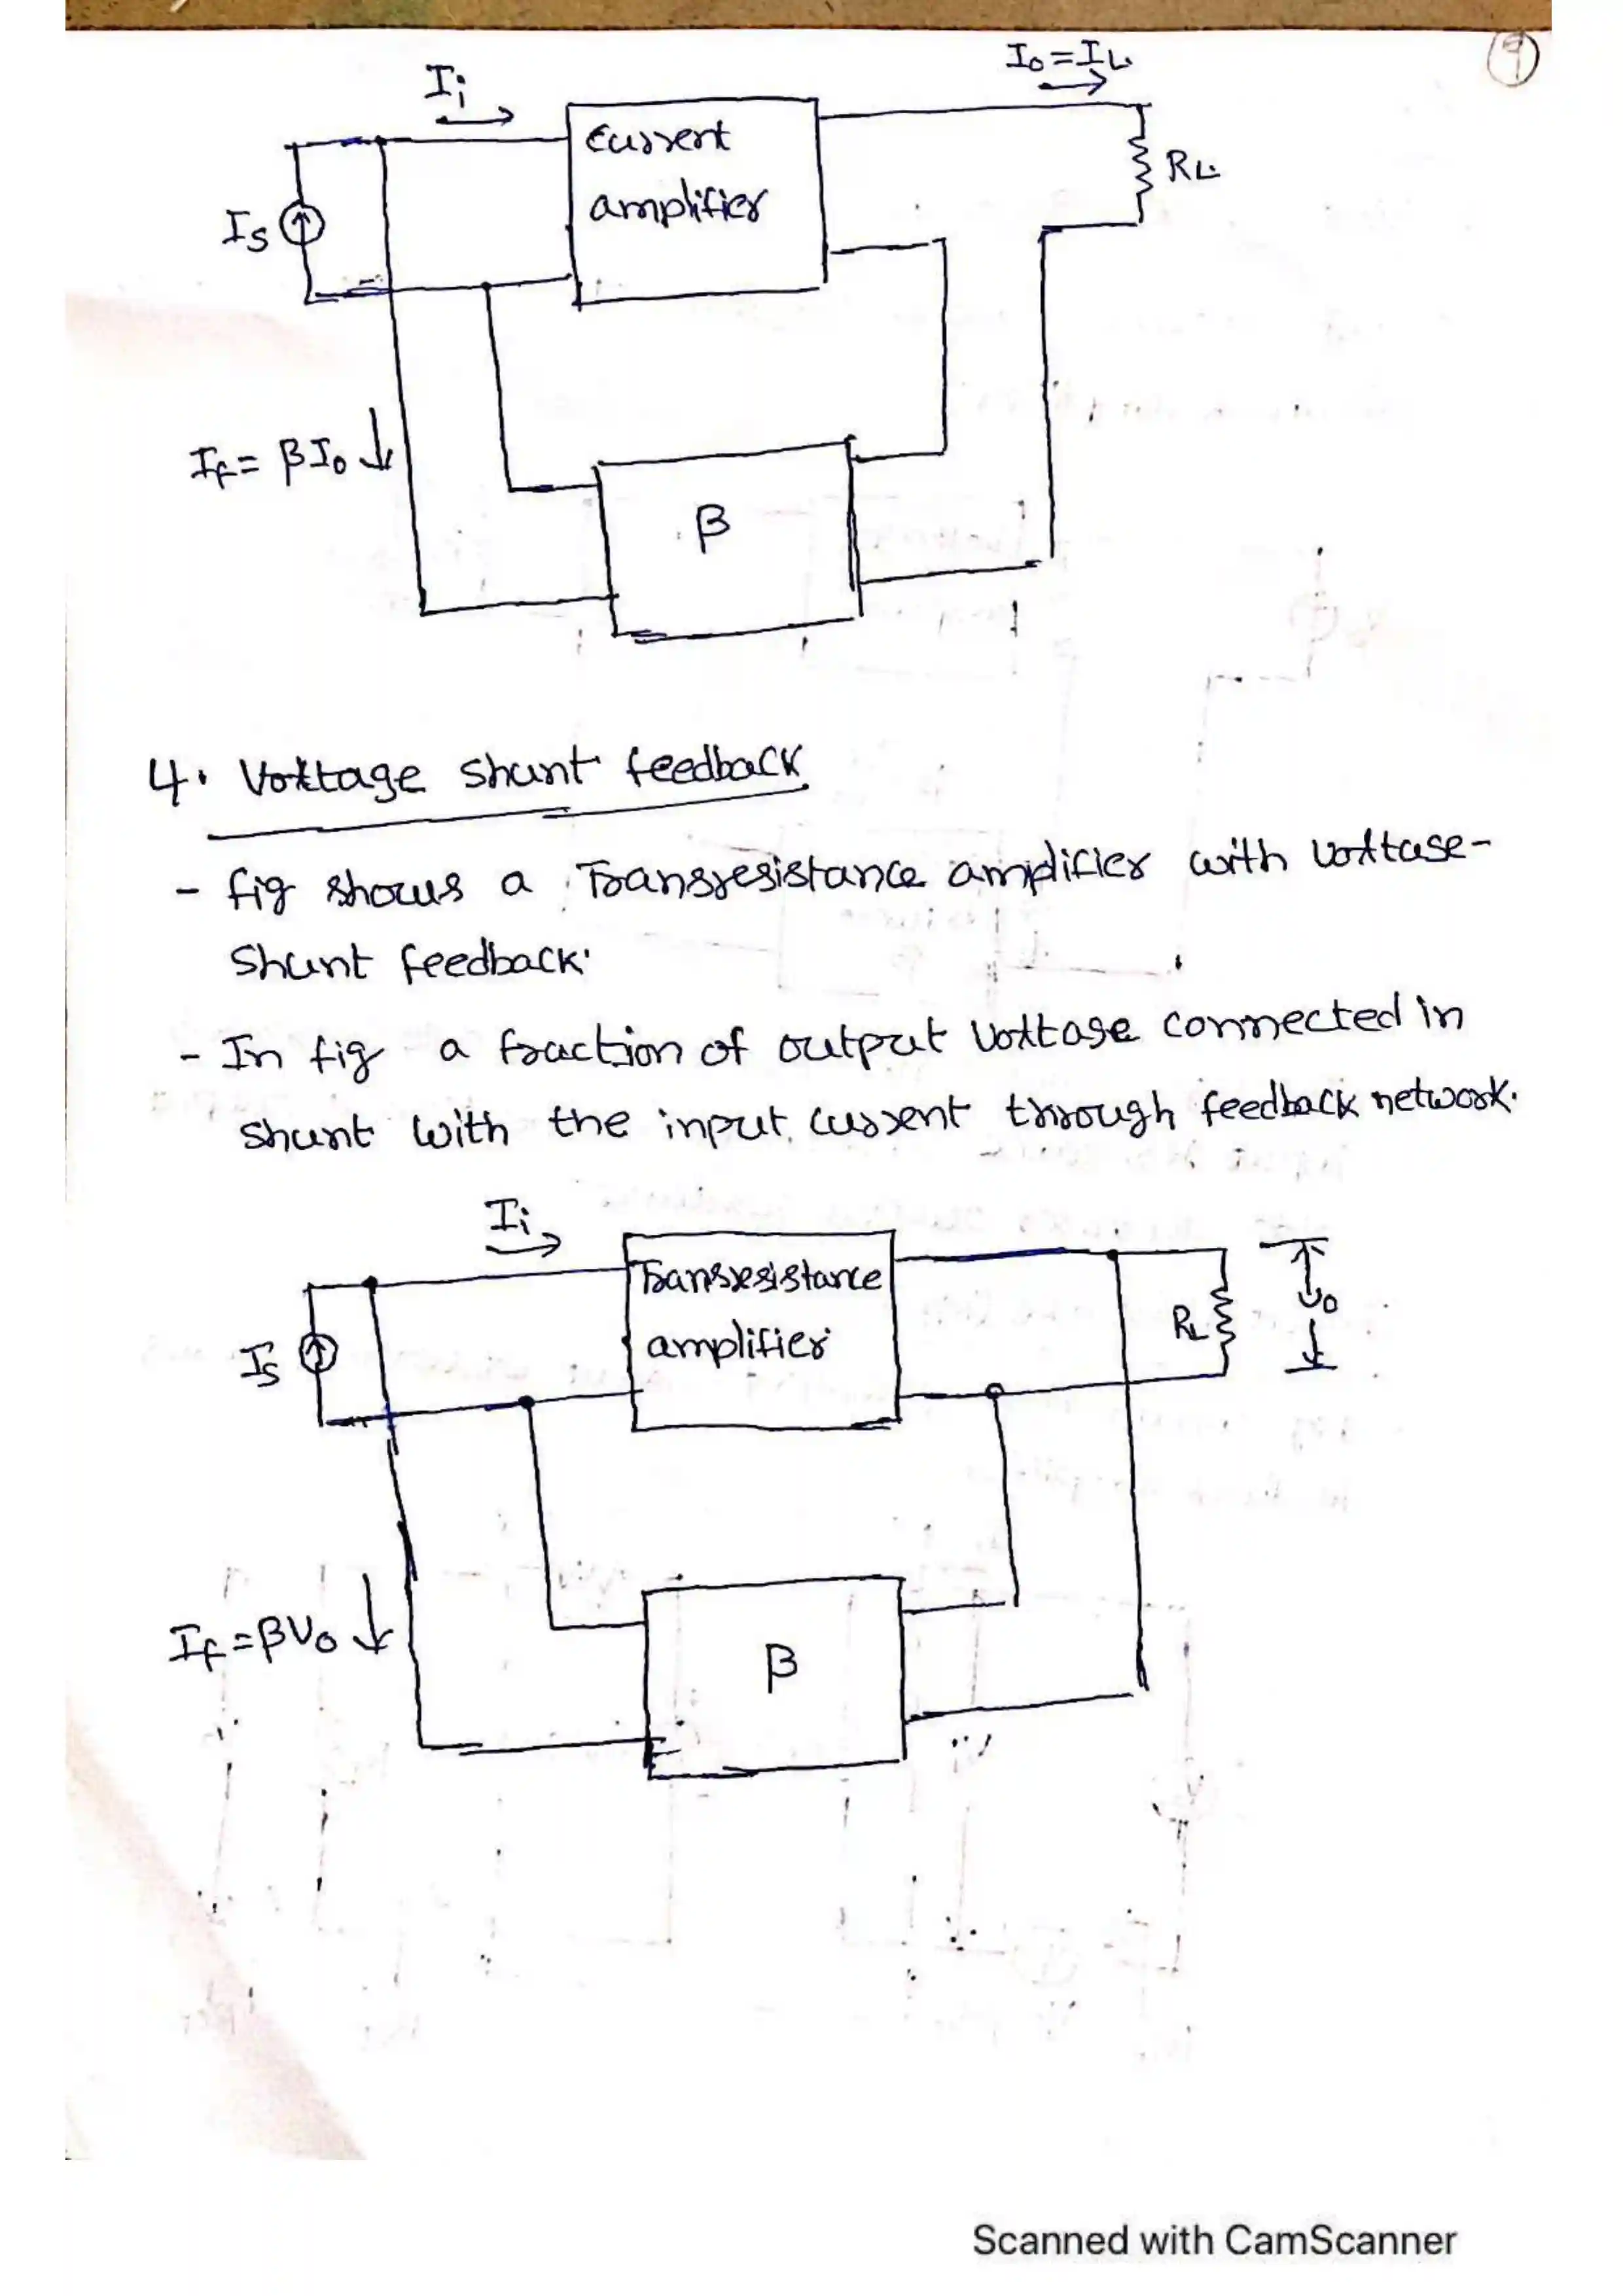 9
Ii
Io = IL
Current
amplifier
RL
Is
If = βIo
β
4. Voltage shunt feedback
- fig shows a Transresistance amplifier with voltase-
shunt feedback.
- In fig a fraction of output voltase connected in
shunt with the input current through feedback network.
Ii
Transresistance
amplifier
RL
Vo
Is
If = βVo
β
Scanned with CamScanner